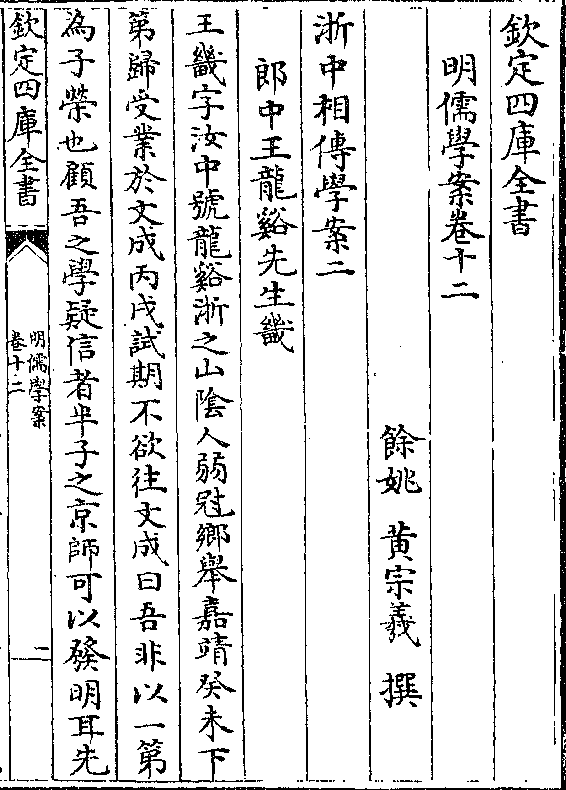 欽定四庫全書
明儒學案卷十二
餘姚 黃宗羲 撰
浙中相傳學案二
郎中王龍谿先生畿
王畿字汝中號龍谿浙之山陰人弱冠鄉舉嘉靖癸未下
第歸受業於文成丙戌試期不欲往文成曰吾非以一第
為子榮也顧吾之學疑信者半子之京師可以發明耳先
欽定四庫全書
明儒學案
卷十二
一